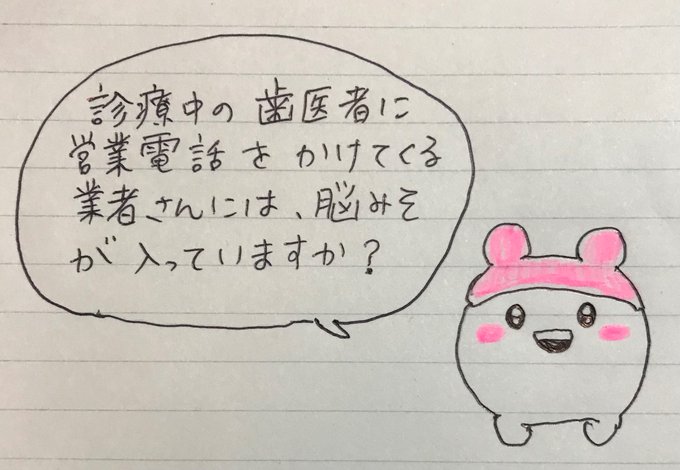 診療中の歯医者に
営業電話をかけてくる
業者さんには、脳みそ
が入っていますか？